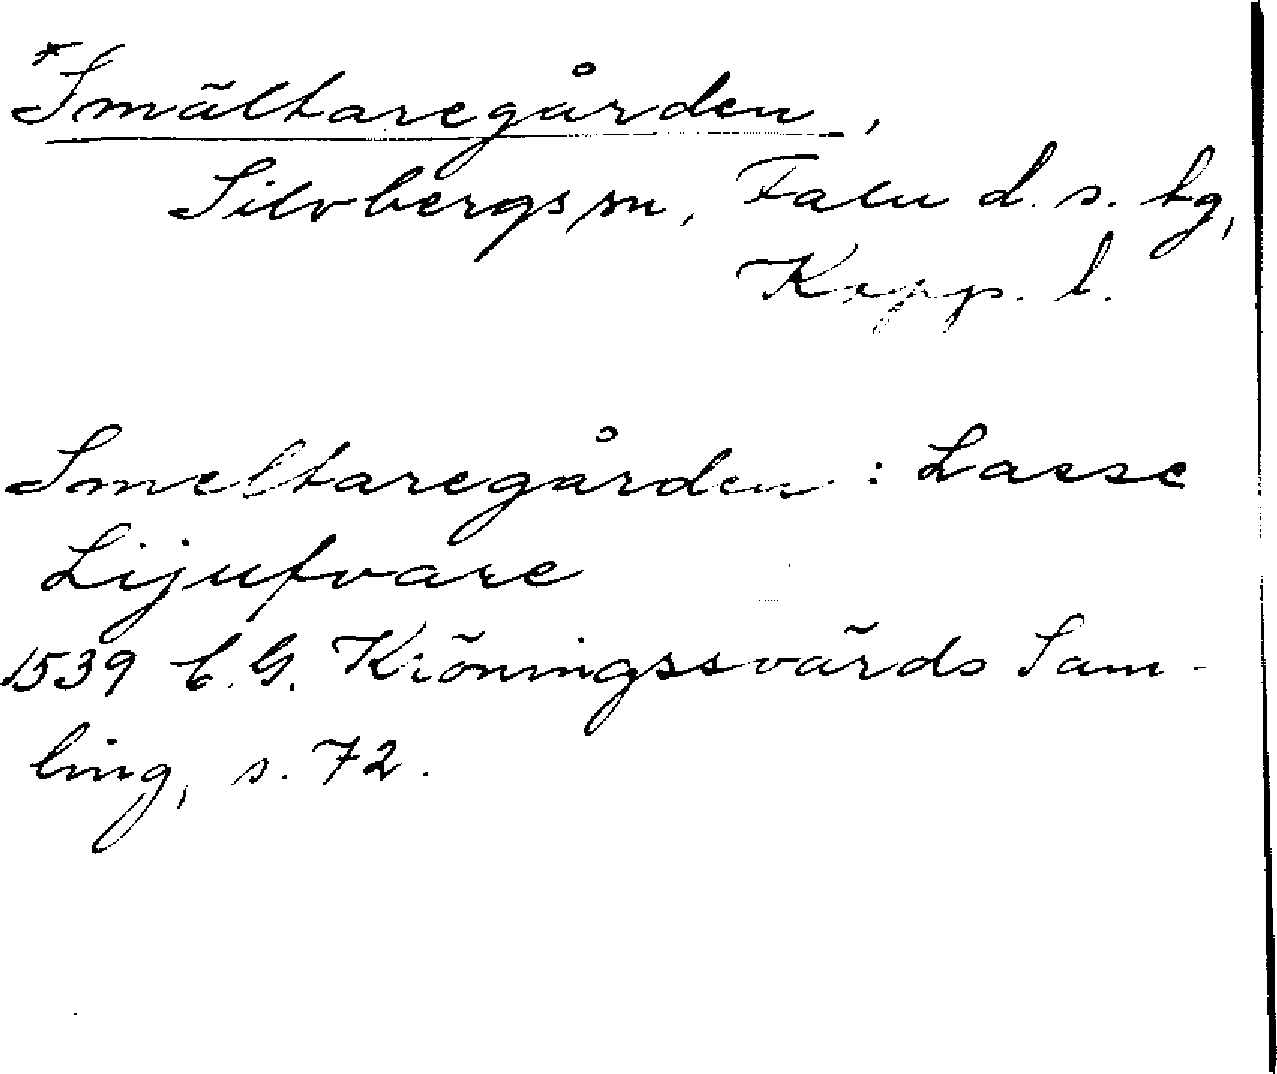 *Smältaregården,
Silvbergs sn, Falu d. s. tg,
Kopp. l.
Smeltaregården: Lasse
Lijufvare
1539 C.G. Kröningssvärds Sam-
ling, s. 72.